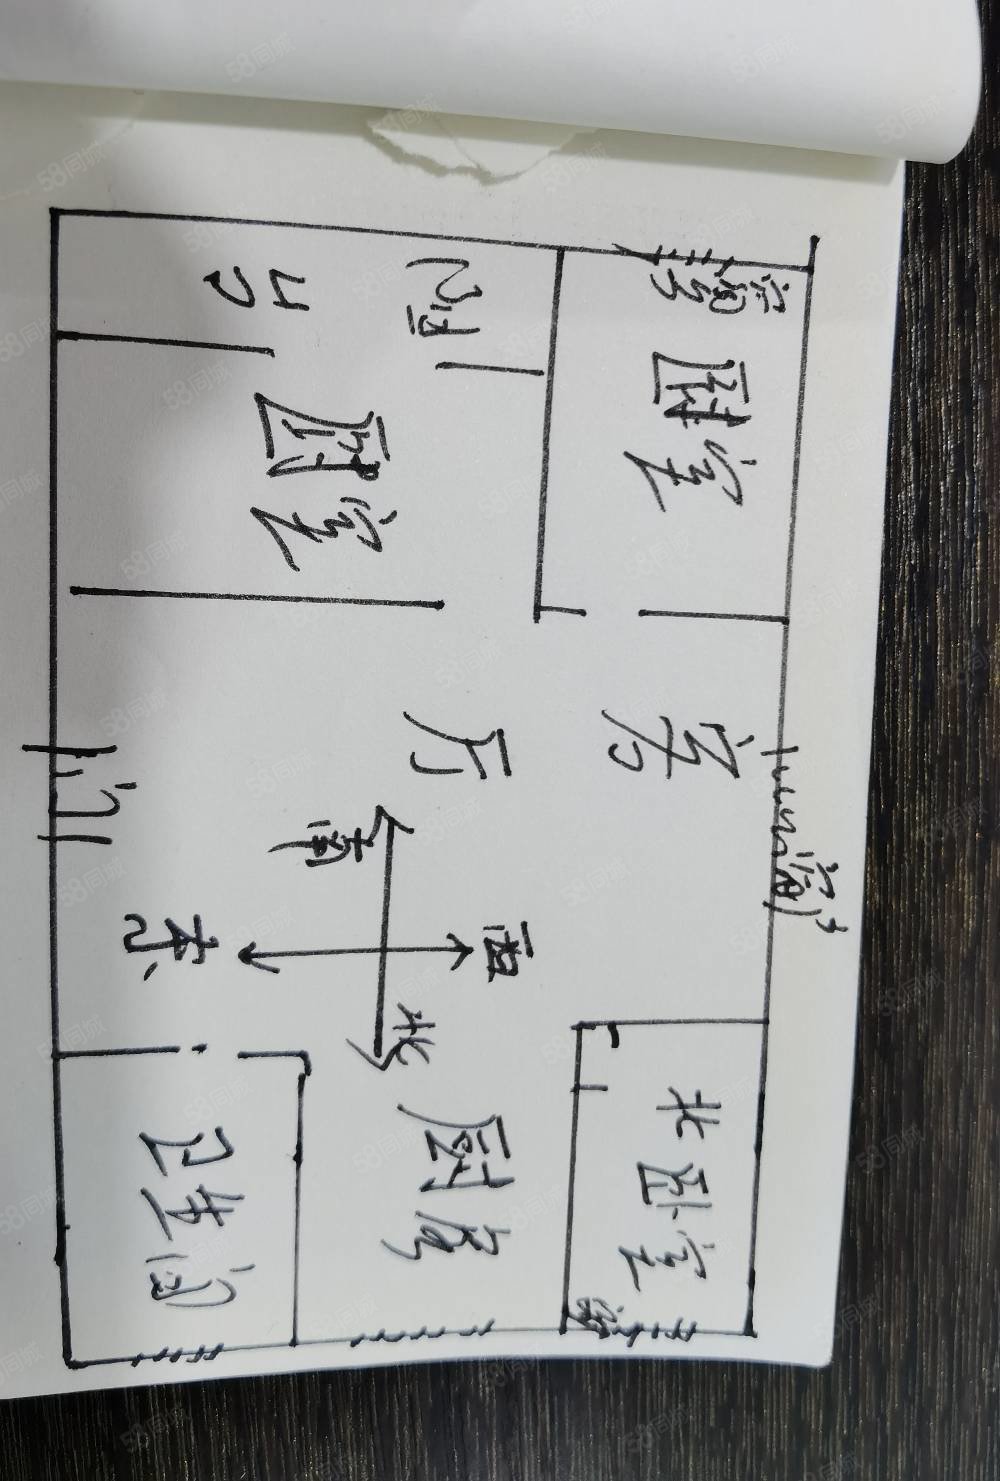 窗
卧室
卧室
房
厅
门
窗
南
西
东
北
北卧室
厨房
卫生间
58同城